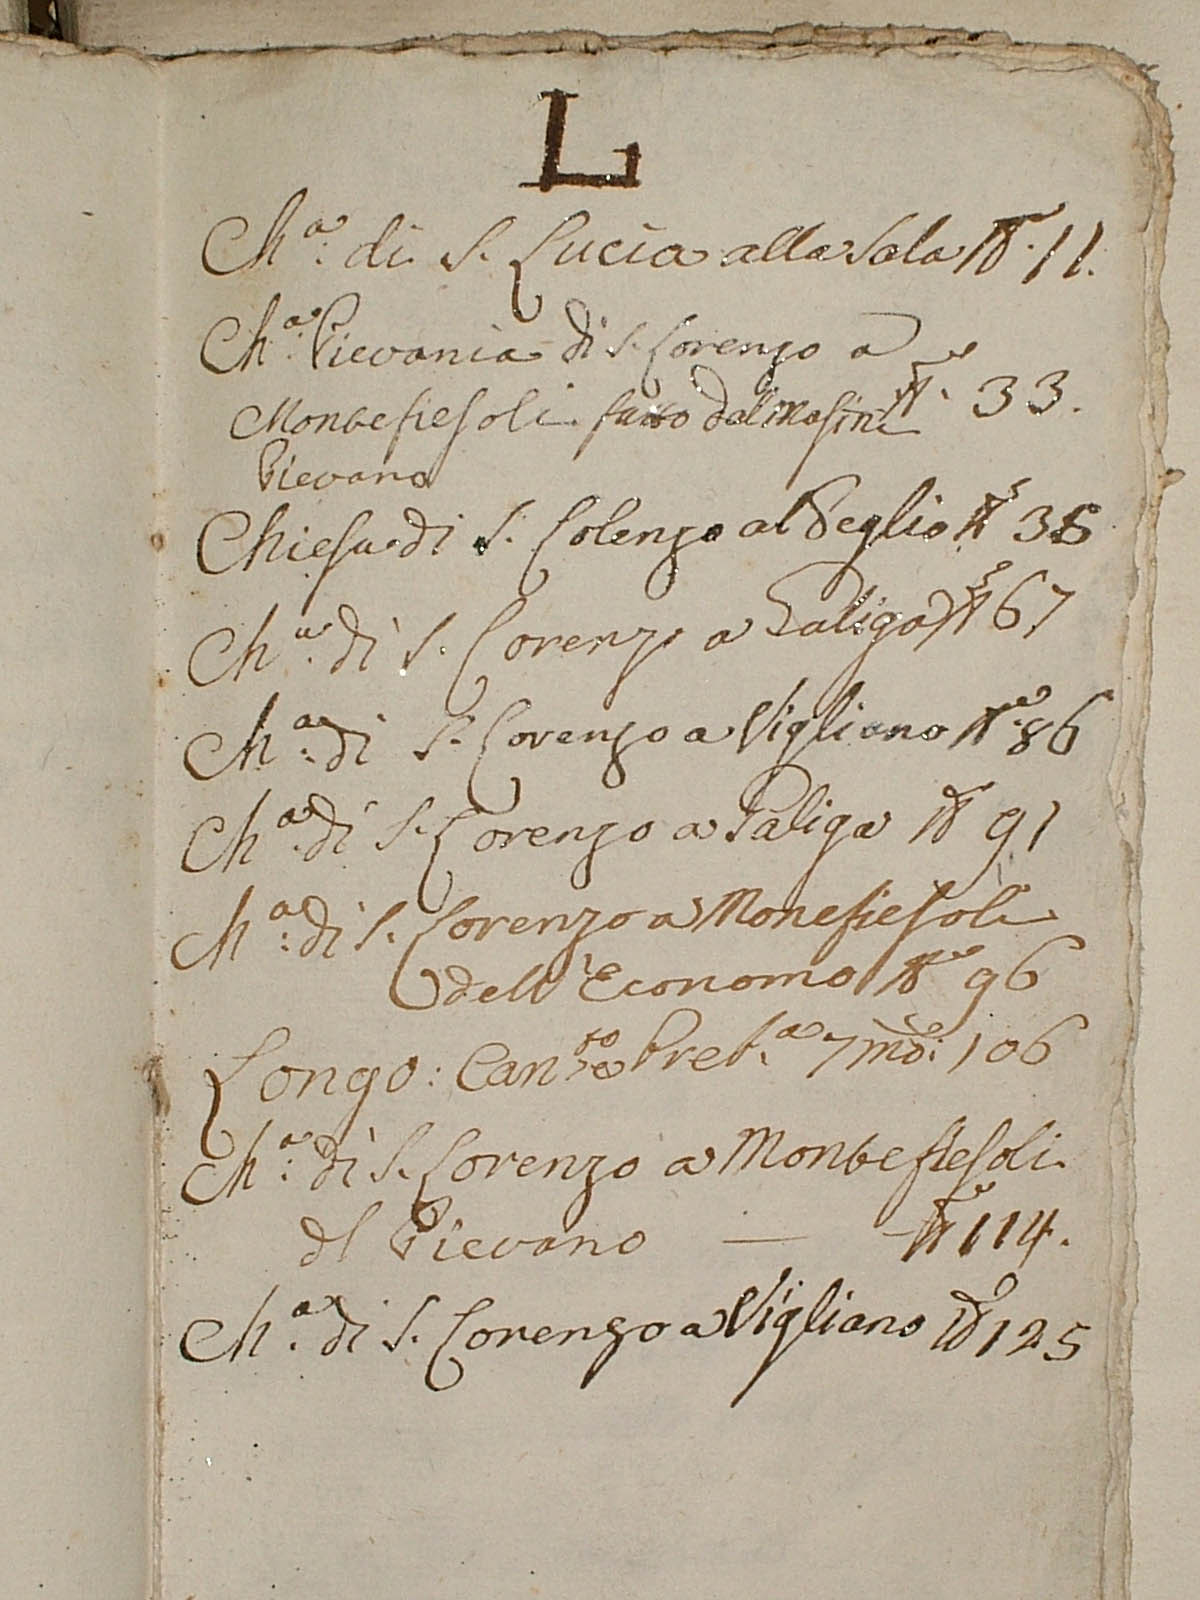 L
Ch.ª di S. Lucia alla Sala Nº. 11.
Ch.ª Pievania di S. Lorenzo a
Montefiesoli fatto dal Masini Nº. 33.
Pievano
Chiesa di S. Lolenzo al Peglio Nº 35
Ch.ª di S. Lorenzo a Galiga Nº 67
Ch.ª di S. Lorenzo a Vigliano Nº. 86
Ch.ª di S. Lorenzo a Galiga Nº 91
Ch.ª di S. Lorenzo a Monefiesoli
dell'Economo Nº 96
Longo: Can.to e Pret.ª 7mo: 106
Ch.ª di S. Lorenzo a Montefiesoli
dl Pievano — Nº 114.
Ch.ª di S. Lorenzo a Vigliano Nº 125